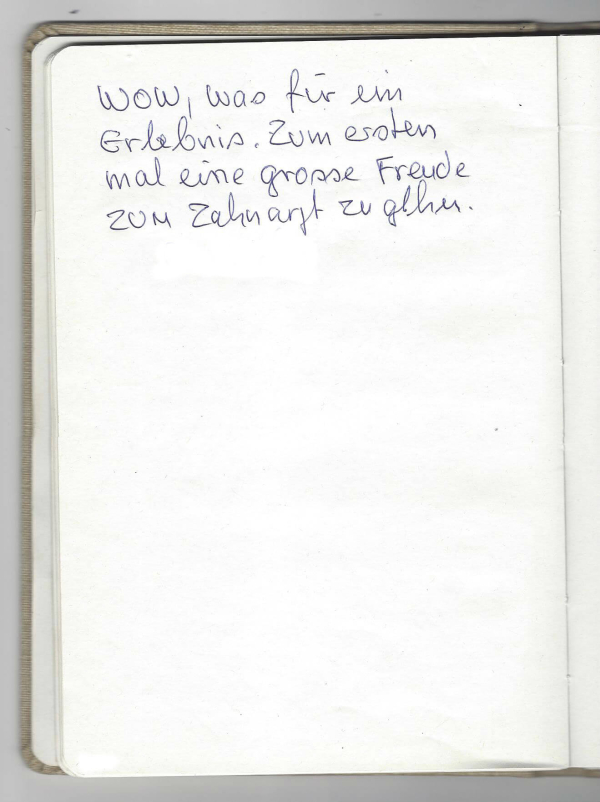 Wow, was für ein
Erlebnis. Zum ersten
mal eine grosse Freude
zum Zahnarzt zu gehen.